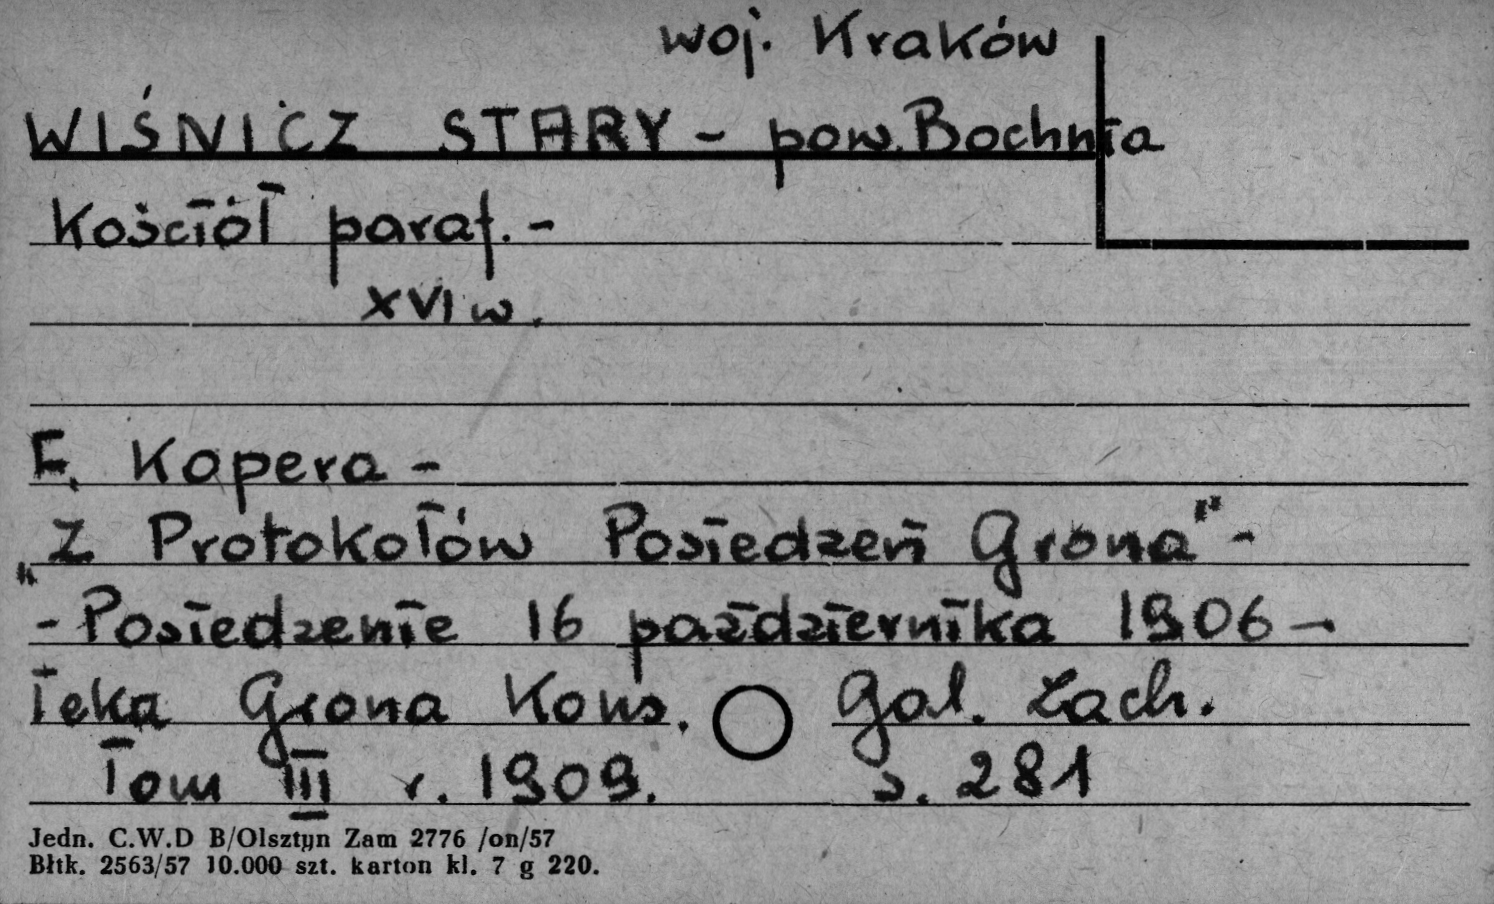 woj. Kraków
WIŚNICZ STARY - pow. Bochnia
Kościół paraf. -
XVI w.
F. Kopera -
"Z Protokołów Posiedzeń Grona" -
- Posiedzenie 16 października 1906 -
Teka Grona Kons. Gal. Zach.
Tom III r. 1909. s. 281
Jedn. C.W.D B/Olsztyn Zam 2776 /on/57
Błtk. 2563/57 10.000 szt. karton kl. 7 g 220.